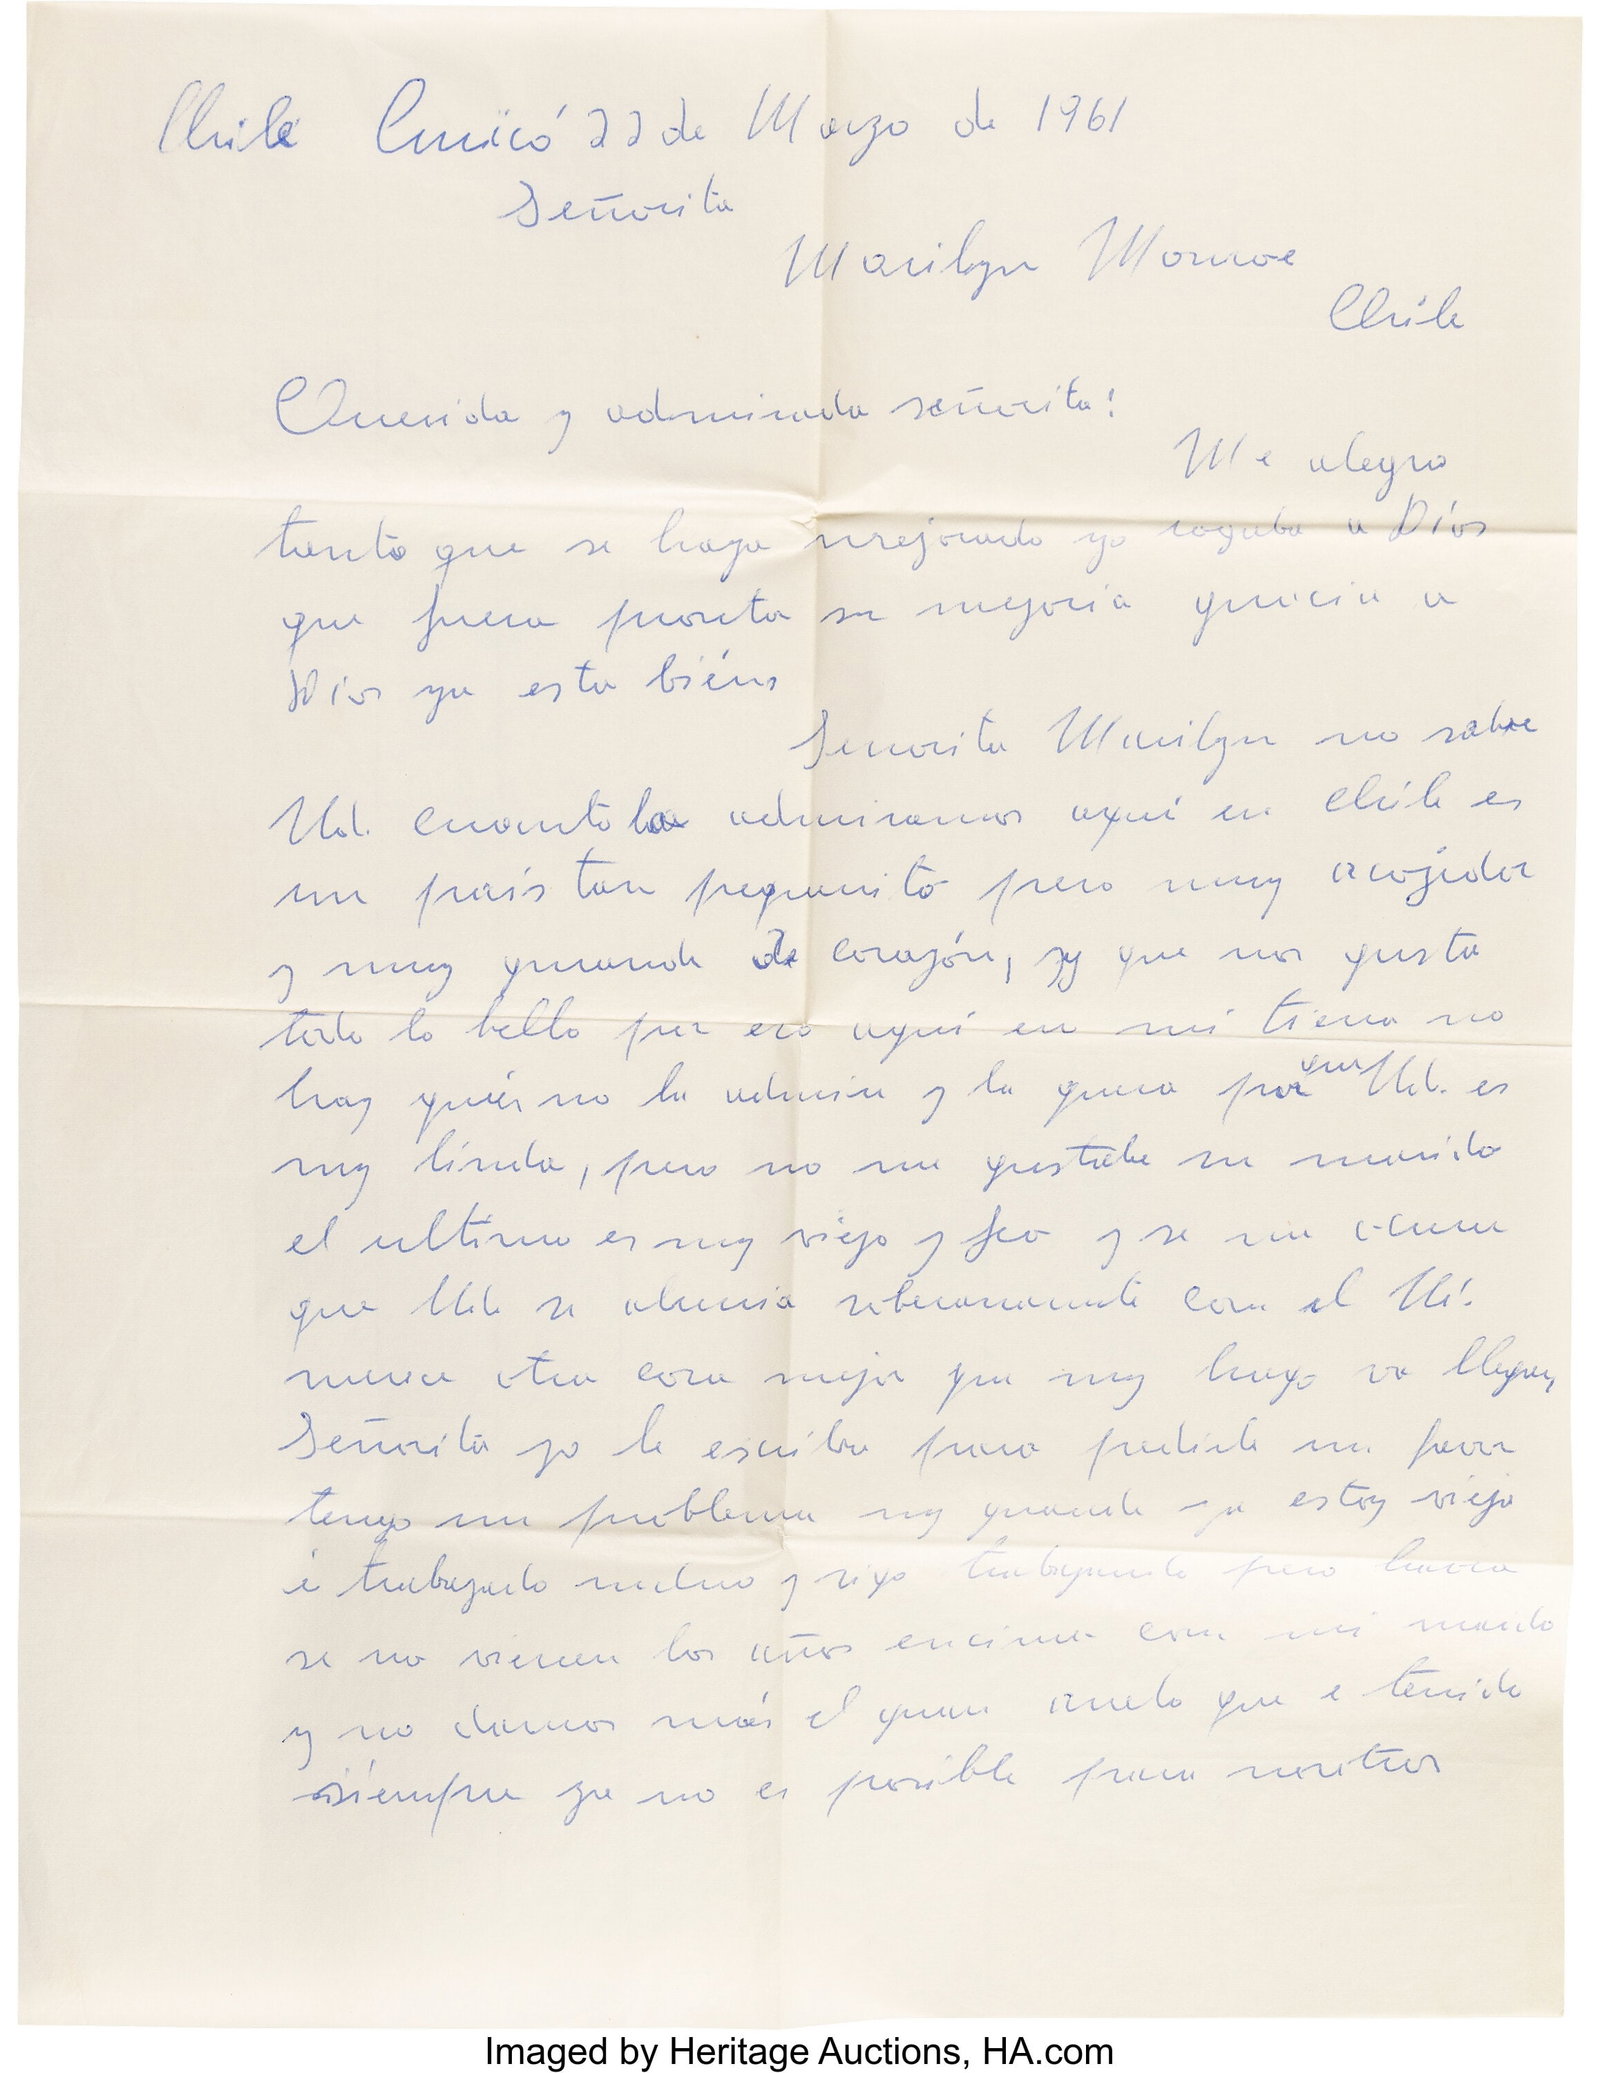 Chile Curicó 22 de Marzo de 1961
Señorita
Marilyn Monroe
Chile
Querida y admirada señorita!
Me alegro
tanto que se haya mejorado yo rogaba a Dios
que fuera pronta su mejoria gracia a
Dios ya esta bién
Senorita Marilyn no sabe
Ud. cuanto la admiramos aquí en Chile es
un país tan pequenito pero muy acojedor
y muy grande de corazón, y que nos gusta
todo lo bello por eso aquí en mi tierra no
hay quién no la admire y la quera por que Ud. es
muy linda, pero no me gustaba su marido
el ultimo es muy viejo y feo y se me ocurre
que Ud. se aburria soberanamente con el
merece otra cosa mejor que muy luego va llegar,
Señorita yo le escribo para pedirle un favor
tengo un problema muy grande ya estoy vieja
é trabajado mucho y sigo trabajando pero haora
se no vienen los años encima con mi marido
y no damos más el gran anelo que e tenido
siempre ya no es posible para nosotros
Imaged by Heritage Auctions, HA.com